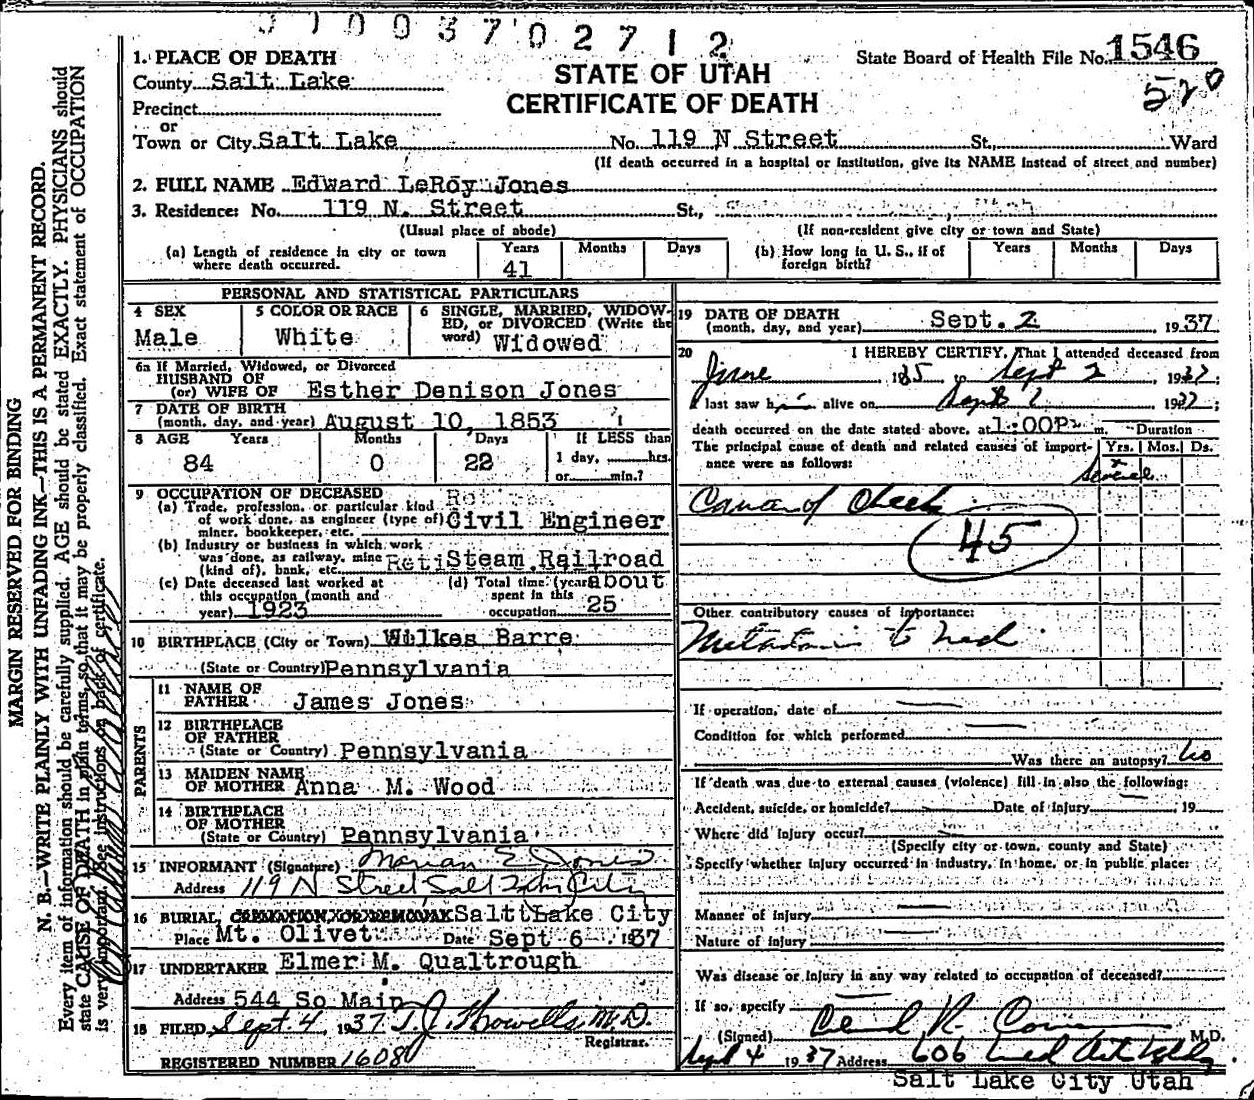 01003702712
1. PLACE OF DEATH
County Salt Lake
Precinct
or
Town or City Salt Lake
STATE OF UTAH
CERTIFICATE OF DEATH
State Board of Health File No. 1546
520
No. 119 N Street St., Ward
(If death occurred in a hospital or institution, give its NAME instead of street and number)
2. FULL NAME Edward LeRoy Jones
3. Residence: No. 119 N. Street St.,
(Usual place of abode) (If non-resident give city or town and State)
(a) Length of residence in city or town where death occurred. Years 41 Months Days
(b) How long in U. S., if of foreign birth? Years Months Days
PERSONAL AND STATISTICAL PARTICULARS
4 SEX
Male
5 COLOR OR RACE
White
6 SINGLE, MARRIED, WIDOW-
ED, or DIVORCED (Write the
word) Widowed
6a If Married, Widowed, or Divorced
HUSBAND OF
(or) WIFE OF Esther Denison Jones
7 DATE OF BIRTH
(month, day, and year) August 10, 1853
8 AGE Years Months Days If LESS than
84 0 22 1 day, hrs.
or min.?
9 OCCUPATION OF DECEASED
(a) Trade, profession, or particular kind
of work done, as engineer (type of) Civil Engineer
miner, bookkeeper, etc.
(b) Industry or business in which work
was done, as railway, mine Steam Railroad
(kind of), bank, etc.
(c) Date deceased last worked at
this occupation (month and
year) 1923
(d) Total time (years about
spent in this
occupation 25
10 BIRTHPLACE (City or Town) Wilkes Barre
(State or Country) Pennsylvania
PARENTS
11 NAME OF
FATHER James Jones
12 BIRTHPLACE
OF FATHER
(State or Country) Pennsylvania
13 MAIDEN NAME
OF MOTHER Anna M. Wood
14 BIRTHPLACE
OF MOTHER
(State or Country) Pennsylvania
15 INFORMANT (Signature) Marian E. Jones
Address 119 N Street Salt Lake City
16 BURIAL, CREMATION, OR REMOVAL Salt Lake City
Place Mt. Olivet Date Sept 6 1937
17 UNDERTAKER Elmer M. Qualtrough
Address 544 So Main
18 FILED Sept. 4 1937 T. J. Howells, M.D.
Registrar.
REGISTERED NUMBER 1608
19 DATE OF DEATH
(month, day, and year) Sept. 2 1937
20 I HEREBY CERTIFY, That I attended deceased from
June 1935 to Sept 2 1937;
I last saw him alive on Sept 1937;
death occurred on the date stated above, at 1:00P m. Duration
The principal cause of death and related causes of import-
ance were as follows:
Yrs. Mos. Ds.
several
Cancer of Cheek
45
Other contributory causes of importance:
Metastasis to neck
If operation, date of
Condition for which performed
Was there an autopsy? no
If death was due to external causes (violence) fill in also the following:
Accident, suicide, or homicide? Date of injury 19
Where did injury occur?
(Specify city or town, county and State)
Specify whether injury occurred in industry, in home, or in public place:
Manner of injury
Nature of injury
Was disease or injury in any way related to occupation of deceased?
If so, specify
(Signed) M.D.
Sept 4 1937 Address 606 Med Arts Bldg.
Salt Lake City Utah
MARGIN RESERVED FOR BINDING
N. B.—WRITE PLAINLY WITH UNFADING INK—THIS IS A PERMANENT RECORD.
Every item of information should be carefully supplied. AGE should be stated EXACTLY. PHYSICIANS should
state CAUSE OF DEATH in plain terms, so that it may be properly classified. Exact statement of OCCUPATION
is very important. See instructions on back of certificate.